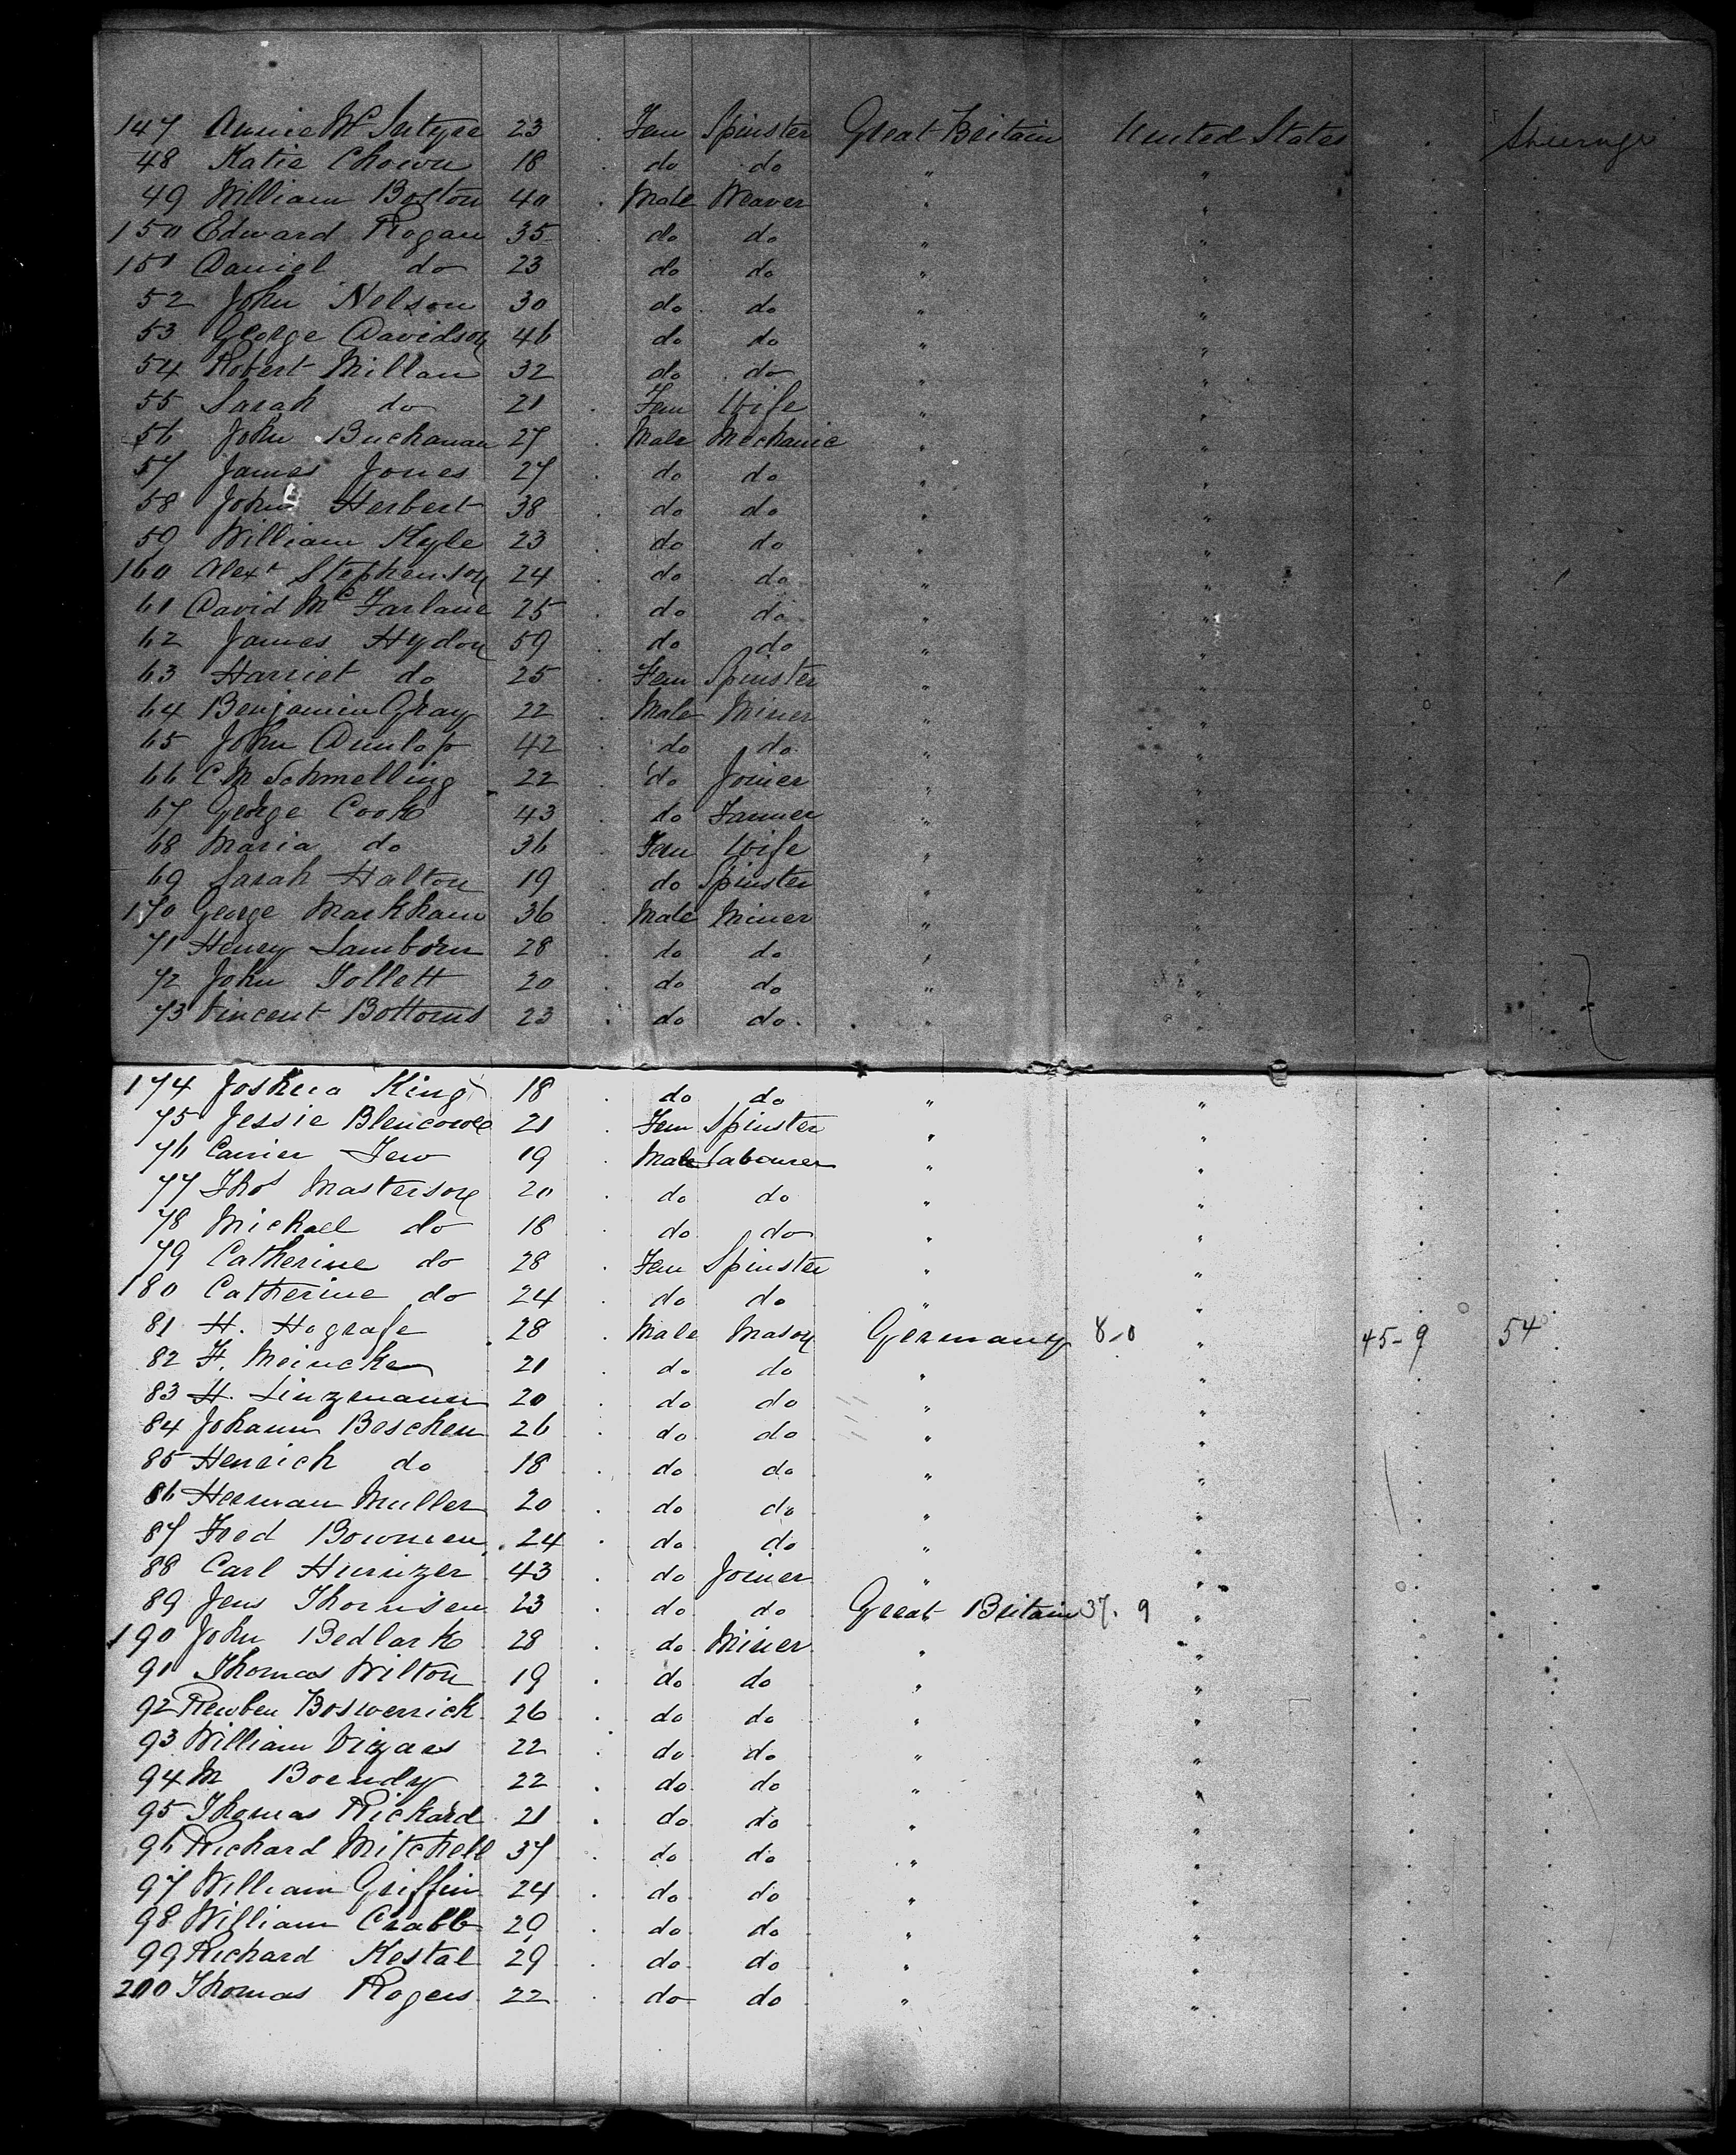 147 Annie Mc Intyre 23 Fem Spinster Great Britain United States Steerage
48 Katie Chown 18 do do " "
49 William Bolton 40 Male Weaver " "
150 Edward Rogan 35 do do " "
151 Daniel do 23 do do " "
52 John Nelson 30 do do " "
53 George Davidson 46 do do " "
54 Robert Millan 32 do do " "
55 Sarah do 21 Fem Wife " "
56 John Buchanan 27 Male Mechanic " "
57 James Jones 27 do do " "
58 John Herbert 38 do do " "
59 William Kyle 23 do do " "
160 Alexr Stephenson 24 do do " "
61 David Mc Farlane 25 do do " "
62 James Hydon 59 do do " "
63 Harriet do 25 Fem Spinster " "
64 Benjamin Gray 22 Male Miner " "
65 John Dunlop 42 do do " "
66 C.M Schmelling 22 do Joiner " "
67 George Cook 43 do Farmer " "
68 Maria do 36 Fem Wife " "
69 Sarah Halton 19 do Spinster " "
170 George Markham 36 Male Miner " "
71 Henry Samborn 28 do do " "
72 John Follett 20 do do " "
73 Vincent Bottoms 23 do do " "
174 Joshua King 18 do do " "
75 Jessie Blencowe 21 Fem Spinster " "
76 19 Male Labourer " "
77 Thos Masterson 20 do do " "
78 Michael do 18 do do " "
79 Catherine do 28 Fem Spinster " "
180 Catherine do 24 do do " "
81 H. Hografe 28 Male Mason Germany 8,0 " 45-9 54
82 F. Meincken 21 do do " "
83 H. Linzmann 20 do do " "
84 Johann Beschen 26 do do " "
85 Henrich do 18 do do " "
86 Herman Muller 20 do do " "
87 Fred Bowmen 24 do do " "
88 Carl 43 do Joiner " "
89 Jens Thornsen 23 do do Great Britain 37. 9 "
190 John Bedlark 28 do Miner " "
91 Thomas Wilton 19 do do " "
92 Rewben Boswerrick 26 do do " "
93 William Vizars 22 do do " "
94 M Boendy 22 do do " "
95 Thomas Rickard 21 do do " "
96 Richard Mitchell 37 do do " "
97 William Griffin 24 do do " "
98 William Crabb 29 do do " "
99 Richard Kestal 29 do do " "
200 Thomas Rogers 22 do do " "